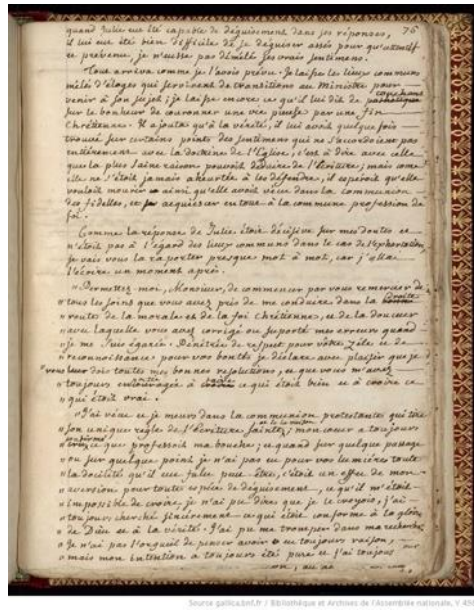 76
quand Julie eut été capable de déguisement dans ses réponses,
il lui eut été bien difficile de se déguiser assés pour qu'attentif
et prévenu, je n'eusse pas démêlé ses vrais sentimens.
Tout arriva comme je l'avois prévu. Je laisse les lieux communs
mêlés d'éloges qui servirent de transitions au Ministre pour
venir à son sujet; je laisse encore ce qu'il lui dit de touchant
sur le bonheur de couronner une vie pieuse par une fin
Chrétienne. Il ajouta qu'à la vérité, il lui avoit quelque fois
trouvé sur certains points des sentimens qui ne s'accordoient pas
entiérement avec la doctrine de l'Eglise, c'est à dire avec celle
que la plus saine raison pouvoit déduire de l'Ecriture; mais come
elle ne s'étoit jamais aheurtée à les défendre, il espéroit qu'elle
vouloit mourir ainsi qu'elle avoit vécu dans la communion
des fidelles, et acquiescer en tout à la commune profession de
foi.
Comme la réponse de Julie étoit décisive sur mes doutes et
n'étoit pas à l'égard des lieux communs dans le cas de l'exhortation,
je vais vous la raporter presque mot à mot, car j'allai
l'écrire un moment après.
"Permettez-moi, Monsieur, de commencer par vous remercier de
"tous les soins que vous avez pris de me conduire dans la droite
"route de la morale et de la foi chrétienne, et de la douceur
"avec laquelle vous avez corrigé ou suporté mes erreurs quand
"je me suis égarée. Pénétrée de respect pour vôtre zèle et de
"reconnoissance pour vos bontés je déclare avec plaisir que je
"vous dois toutes mes bonnes résolutions, et que vous m'avez
"toujours portée à faire ce qui étoit bien et à croire ce
"qui étoit vrai.
"J'ai vécu et je meurs dans la communion protestante qui tire
"son unique regle de l'Ecriture sainte et de la raison; mon cœur a toujours
"confirmé ce que professoit ma bouche; et quand sur quelque passage
"ou sur quelque point je n'ai pas eu pour vos lumiéres toute
"la docilité qu'il eut falu peut-être, c'étoit un effet de mon
"aversion pour toute espéce de déguisement; ce qu'il m'étoit
"impossible de croire, je n'ai pu dire que je le croyois; j'ai
"toujours cherché sincérement ce qui étoit conforme à la gloire
"de Dieu et à la vérité. J'ai pu me tromper dans ma recherche;
"Je n'ai pas l'orgueil de penser avoir eu toujours raison,
"mais mon intention a toujours été pure et j'ai toujous
Source gallica.bnf.fr / Bibliothèque et Archives de l'Assemblée nationale,